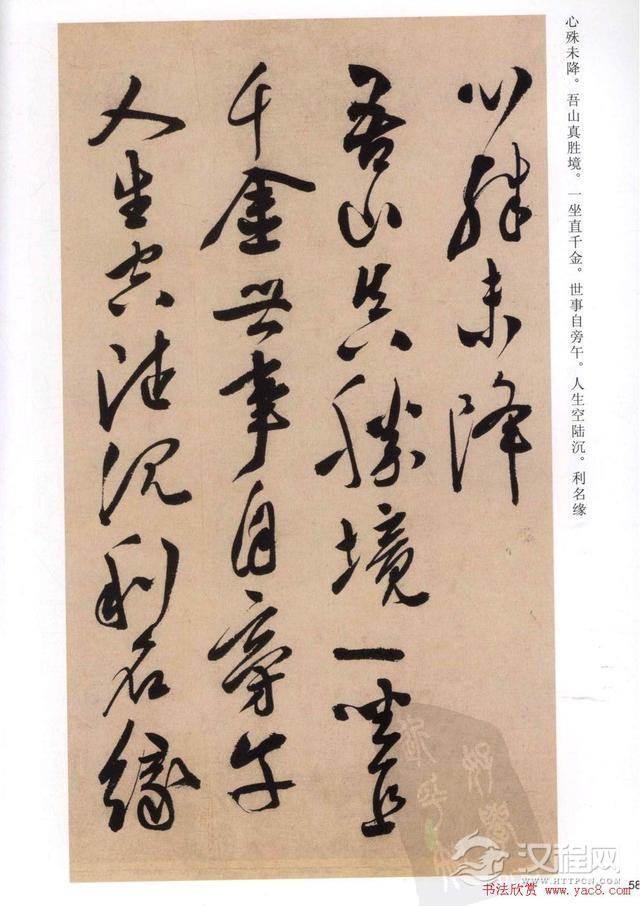 心殊未降。吾山真胜境。一坐直千金。世事自旁午。人生空陆沉。利名缘
心殊未降
吾山真勝境一坐直
千金世事自旁午
人生空陸沉利名緣
汉程网
HTTPCN.COM
58
书法欣赏 www.yac8.com